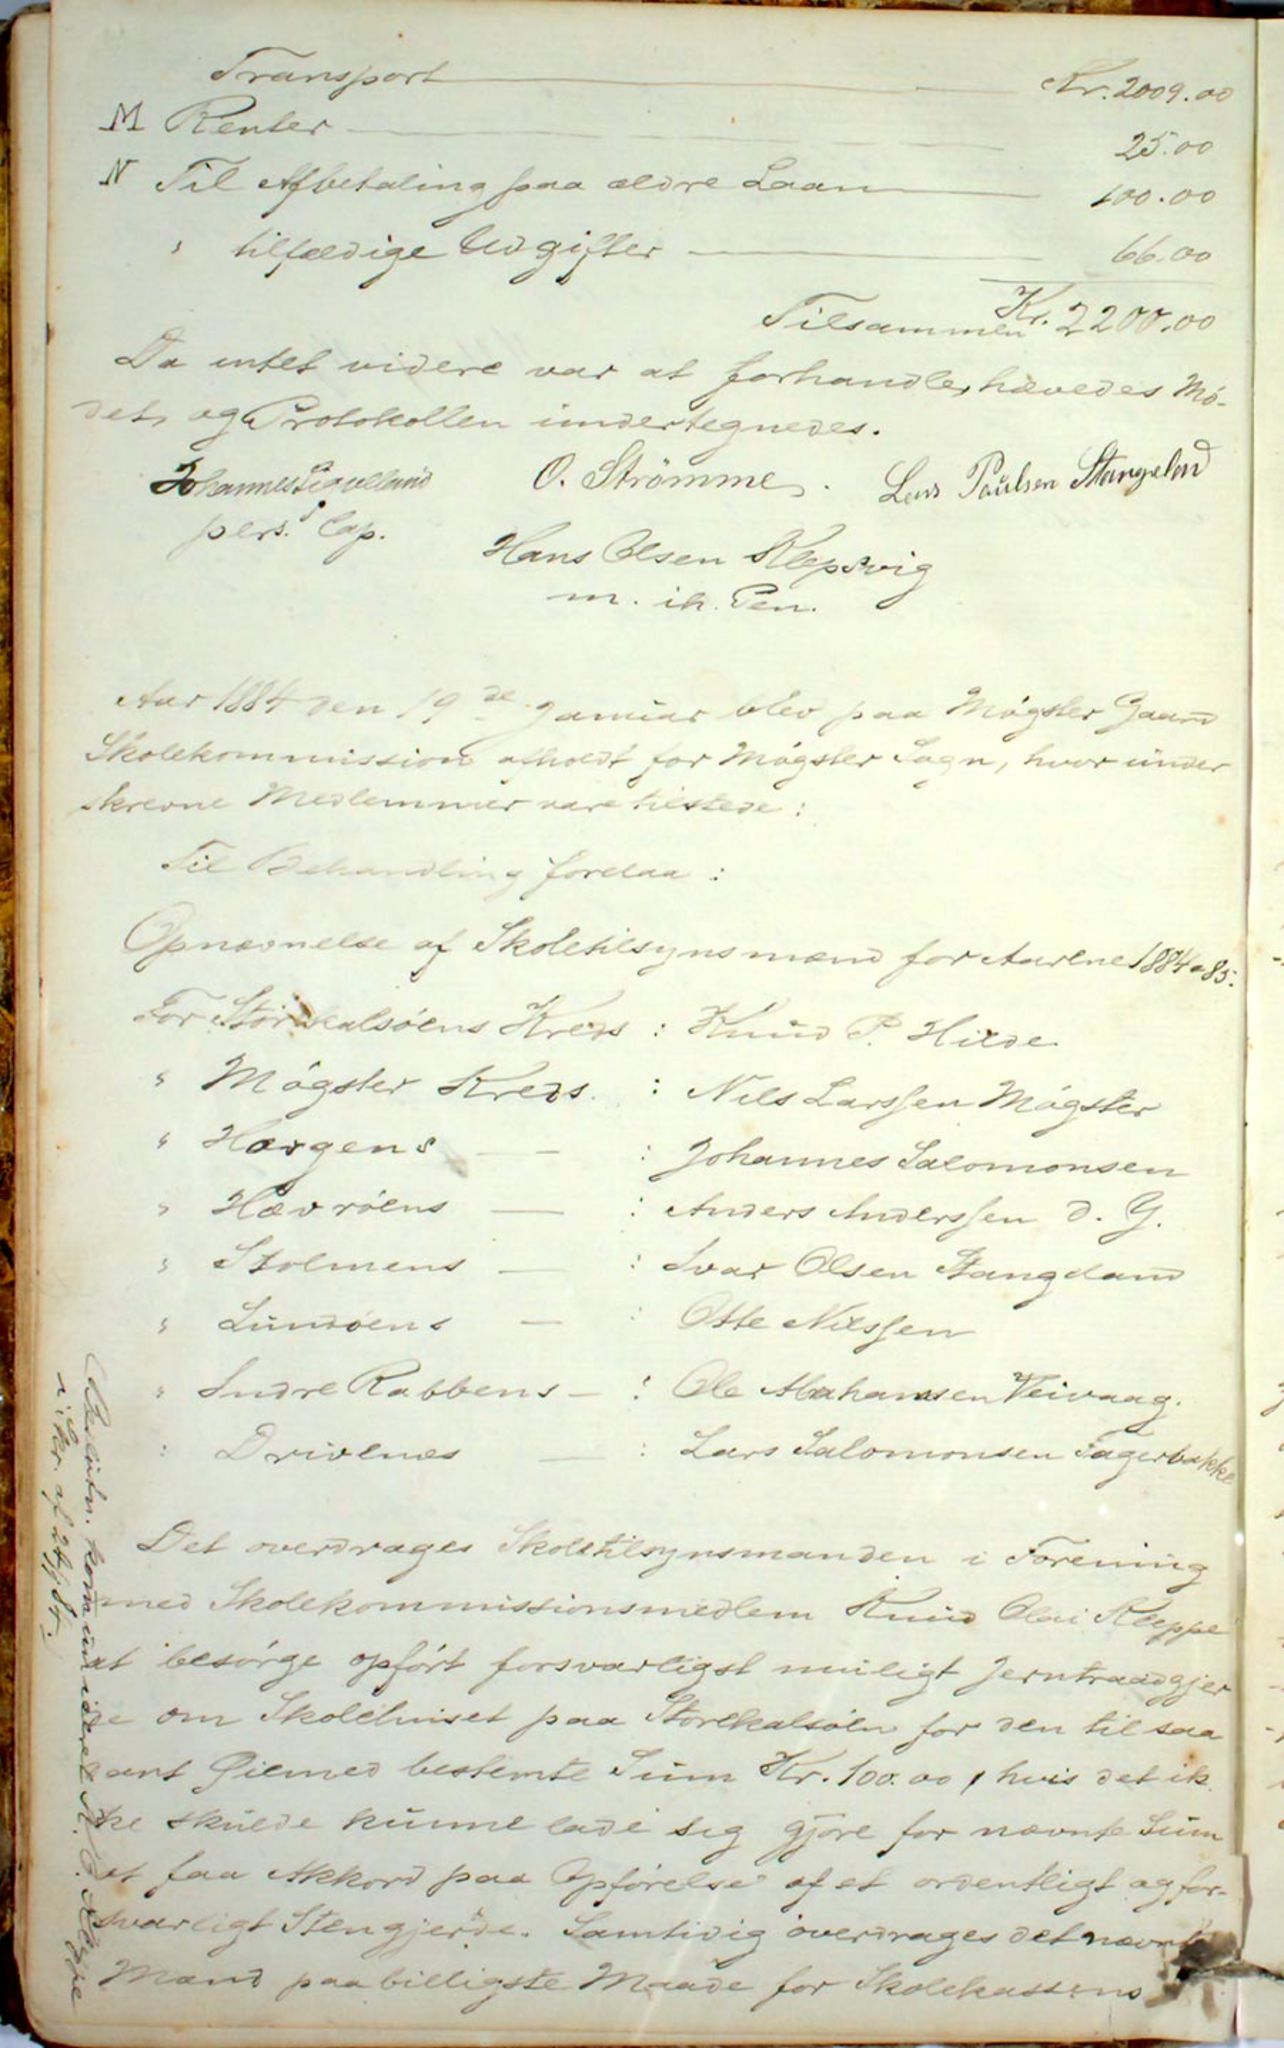 Transport Kr. 2009.00
M Renter 25.00
N Til Afbetaling paa ældre Laan 100.00
" tilfældige Udgifter 66.00
Tilsammen Kr. 2200.00
Da intet videre var at forhandles, hævedes Mö-
det, og Protokollen undertegnedes.
Johannes Sigvelland O. Strömme. Lars Paulsen Stangeland
pers. Cap.
Hans Olsen Klepsvig
m. ih. Pen.
Aar 1884 den 19de Januar blev paa Mögster Gaard
Skolekommission afholdt for Mögster Sogn, hvor under
skrevne Medlemmer vare tilstede:
Til Behandling forelaa:
Opnævnelse af Skoletilsynsmænd for Aarene 1884 o 85.
For Storekalsöens Kreds : Knud P. Hilde
" Mögster Kreds. : Nils Larssen Mögster
" Horgens — : Johannes Salomonsen
" Hævröens — : Anders Anderssen d. Y.
" Stolmens — : Ivar Olsen Stangeland
" Sundöens — : Otte Nilssen
" Indre Rabbens — : Ole Abrahamsen Veivaag.
" Drivenes — : Lars Salomonsen Fagerbakke
Det overdrages Skoletilsynsmanden i Forening
med Skolekommissionsmedlem Knud Olai Kleppe
at besörge opfört forsvarligst muligt Jerntraadgjer
de om Skolehuset paa Storekalsöen for den til saa
dant Öiemed bestemte Sum Kr. 100.00, hvis det ik
ke skulde kunne lade sig gjöre for nævnte Sum
at faa Akkord paa Opförelse af et ordentligt og for-
svarligt Stengjerde. Samtidig overdrages det nævnte
Mænd paa billigste Maade for Skolekassens
Beslutn. kommuniceret K. O. Kleppe
i Skr. af 24/1 84.